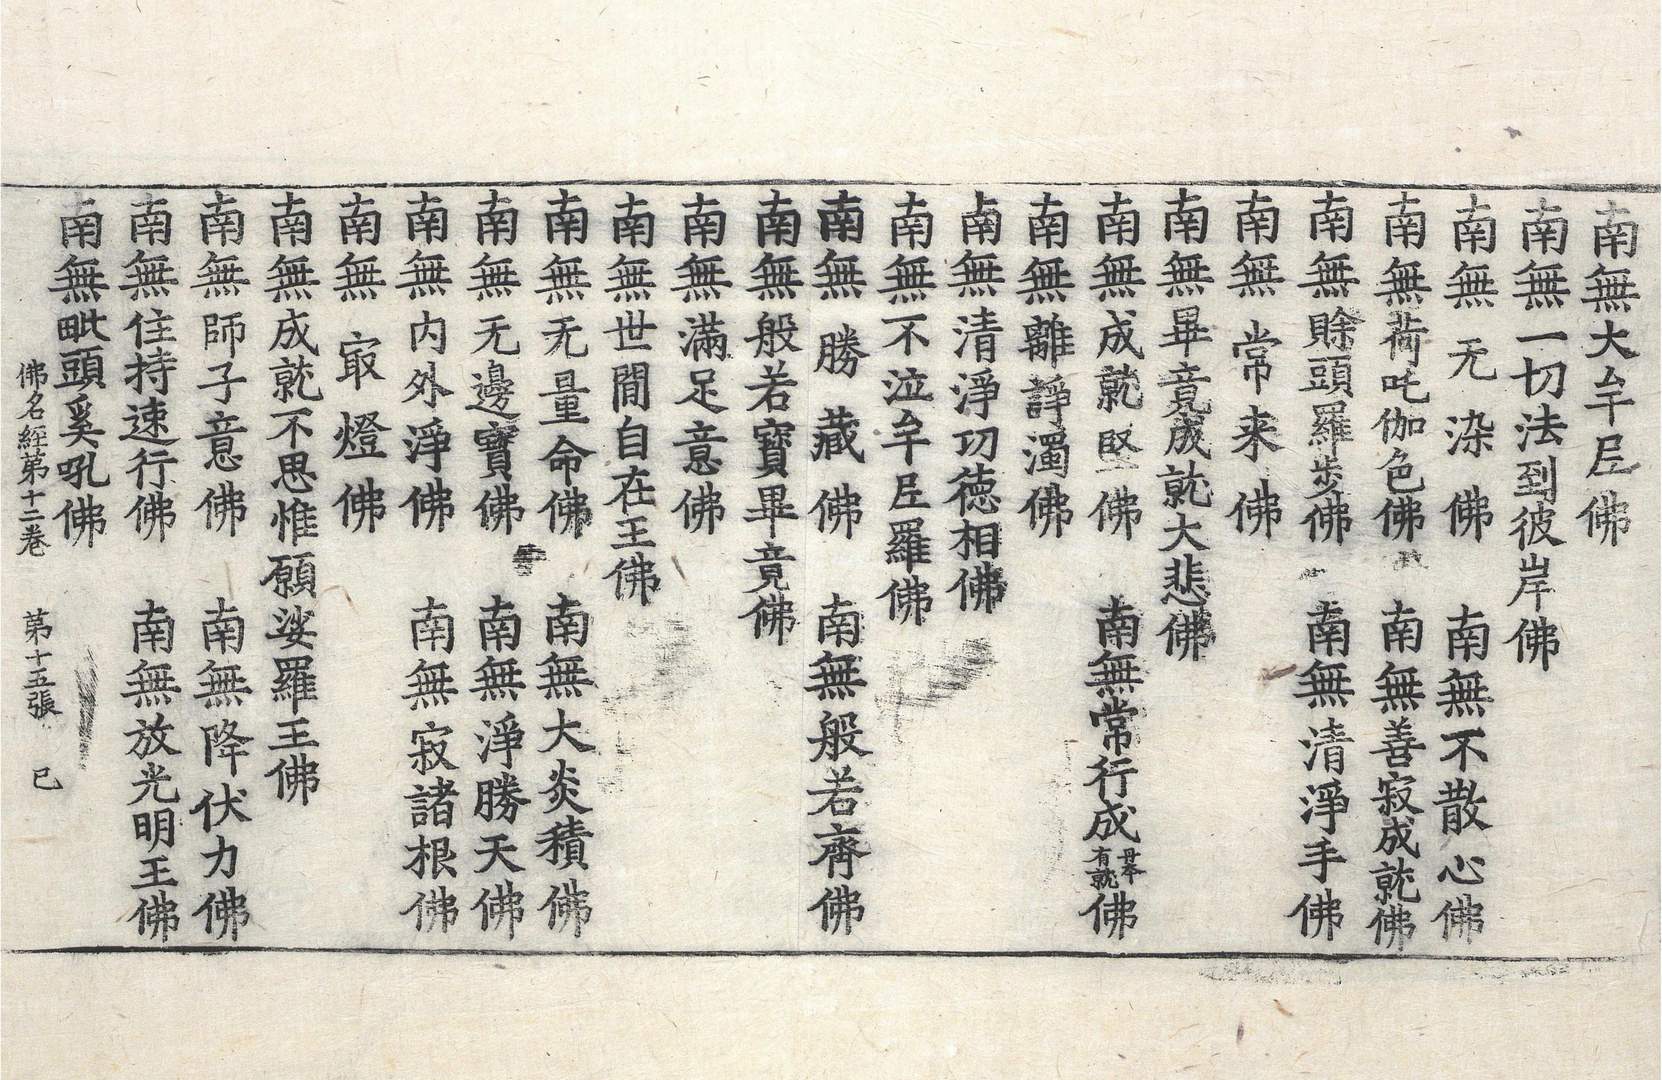 南無大牟尼佛
南無一切法到彼岸佛
南無无染佛 南無不散心佛
南無荷吒伽色佛 南無善寂成就佛
南無賖頭羅步佛 南無清淨手佛
南無常来佛
南無畢竟成就大悲佛
南無成就堅佛 南無常行成丹本有就佛
南無離諍濁佛
南無清淨功徳相佛
南無不泣牟尼羅佛
南無勝藏佛 南無般若齊佛
南無般若寶畢竟佛
南無滿足意佛
南無世間自在王佛
南無无量命佛 南無大炎積佛
南無无邊寶佛 南無淨勝天佛
南無内外淨佛 南無寂諸根佛
南無冣燈佛
南無成就不思惟願娑羅王佛
南無師子意佛 南無降伏力佛
南無住持速行佛 南無放光明王佛
南無毗頭奚吼佛
佛名經第十二卷 第十五張 已